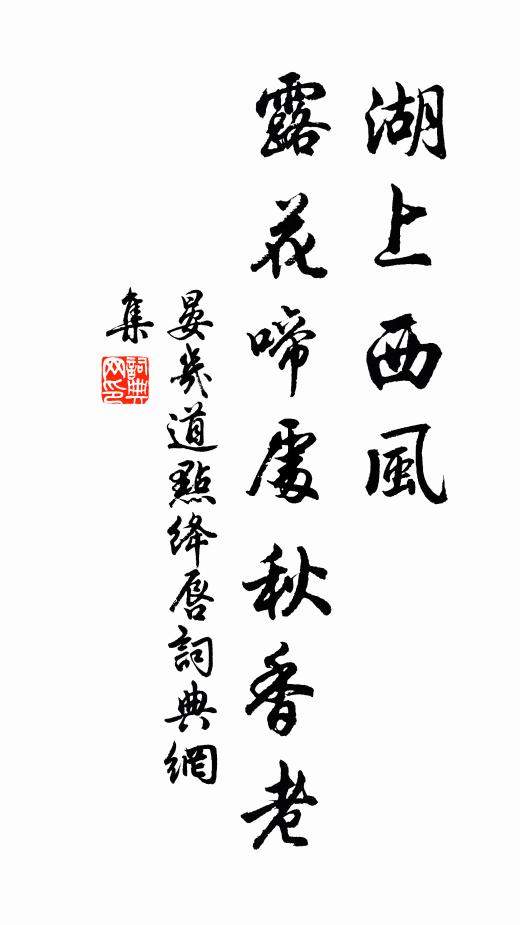 湖上西風
露花啼處秋香老
晏幾道點絳唇詞典網
集
詞典
网印